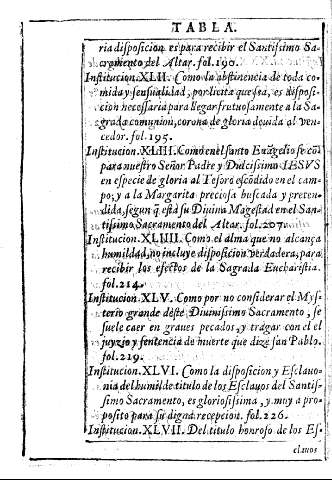 TABLA.
ria disposicion es para recibir el Santissimo Sa-
cramento del Altar. fol. 190.
Institucion. XLII. Como la abstinencia de toda co-
mida y sensualidad, por licita que sea, es disposi-
cion necessaria para llegar frutuosamente a la Sa-
grada comunion, corona de gloria deuida al ven-
cedor. fol. 195.
Institucion. XLIII. Como en el santo Euãgelio se cõ
para nuestro Señor Padre y Dulcissimo IESVS
en especie de gloria al Tesoro escõdido en el cam-
po; y a la Margarita preciosa buscada y preten-
dida, segun q̃ està su Diuina Magestad en el San-
tissimo Sacramento del Altar. fol. 207.
Institucion. XLIIII. Como el alma que no alcança
humildad, no incluye disposicion verdadera, para
recibir los efectos de la Sagrada Eucharistia.
fol. 214.
Institucion. XLV. Como por no considerar el Mys-
terio grande deste Diuinissimo Sacramento, se
suele caer en graues pecados, y tragar con el el
juyzio y sentencia de muerte que dize san Pablo.
fol. 219.
Institucion. XLVI. Como la disposicion y Esclauo-
nia del humilde titulo de los Esclauos del Santis-
simo Sacramento, es gloriosissima, y muy a pro-
posito para su digna recepcion. fol. 226.
Institucion. XLVII. Del titulo honroso de los Es-
clauos